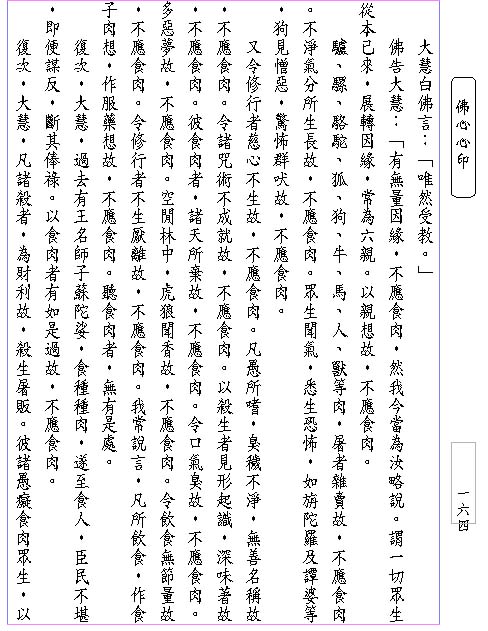 佛心心印
大慧白佛言：「唯然受教。」
佛告大慧：「有無量因緣，不應食肉，然我今當為汝略說。謂一切眾生
從本已來，展轉因緣，常為六親。以親想故，不應食肉。
驢、騾、駱駝、狐、狗、牛、馬、人、獸等肉，屠者雜賣故，不應食肉
。不淨氣分所生長故，不應食肉。眾生聞氣，悉生恐怖，如旃陀羅及譚婆等
，狗見憎惡，驚怖群吠故，不應食肉。
又令修行者慈心不生故，不應食肉。凡愚所嗜，臭穢不淨，無善名稱故
，不應食肉。令諸咒術不成就故，不應食肉。以殺生者見形起識，深味著故
，不應食肉。彼食肉者，諸天所棄故，不應食肉。令口氣臭故，不應食肉。
多惡夢故，不應食肉。空閒林中，虎狼聞香故，不應食肉。令飲食無節量故
，不應食肉。令修行者不生厭離故，不應食肉。我常說言，凡所飲食，作食
子肉想，作服藥想故，不應食肉。聽食肉者，無有是處。
復次，大慧，過去有王名師子蘇陀娑，食種種肉，遂至食人，臣民不堪
，即便謀反，斷其俸祿。以食肉者有如是過故，不應食肉。
復次，大慧，凡諸殺者，為財利故，殺生屠販。彼諸愚癡食肉眾生，以
一六四